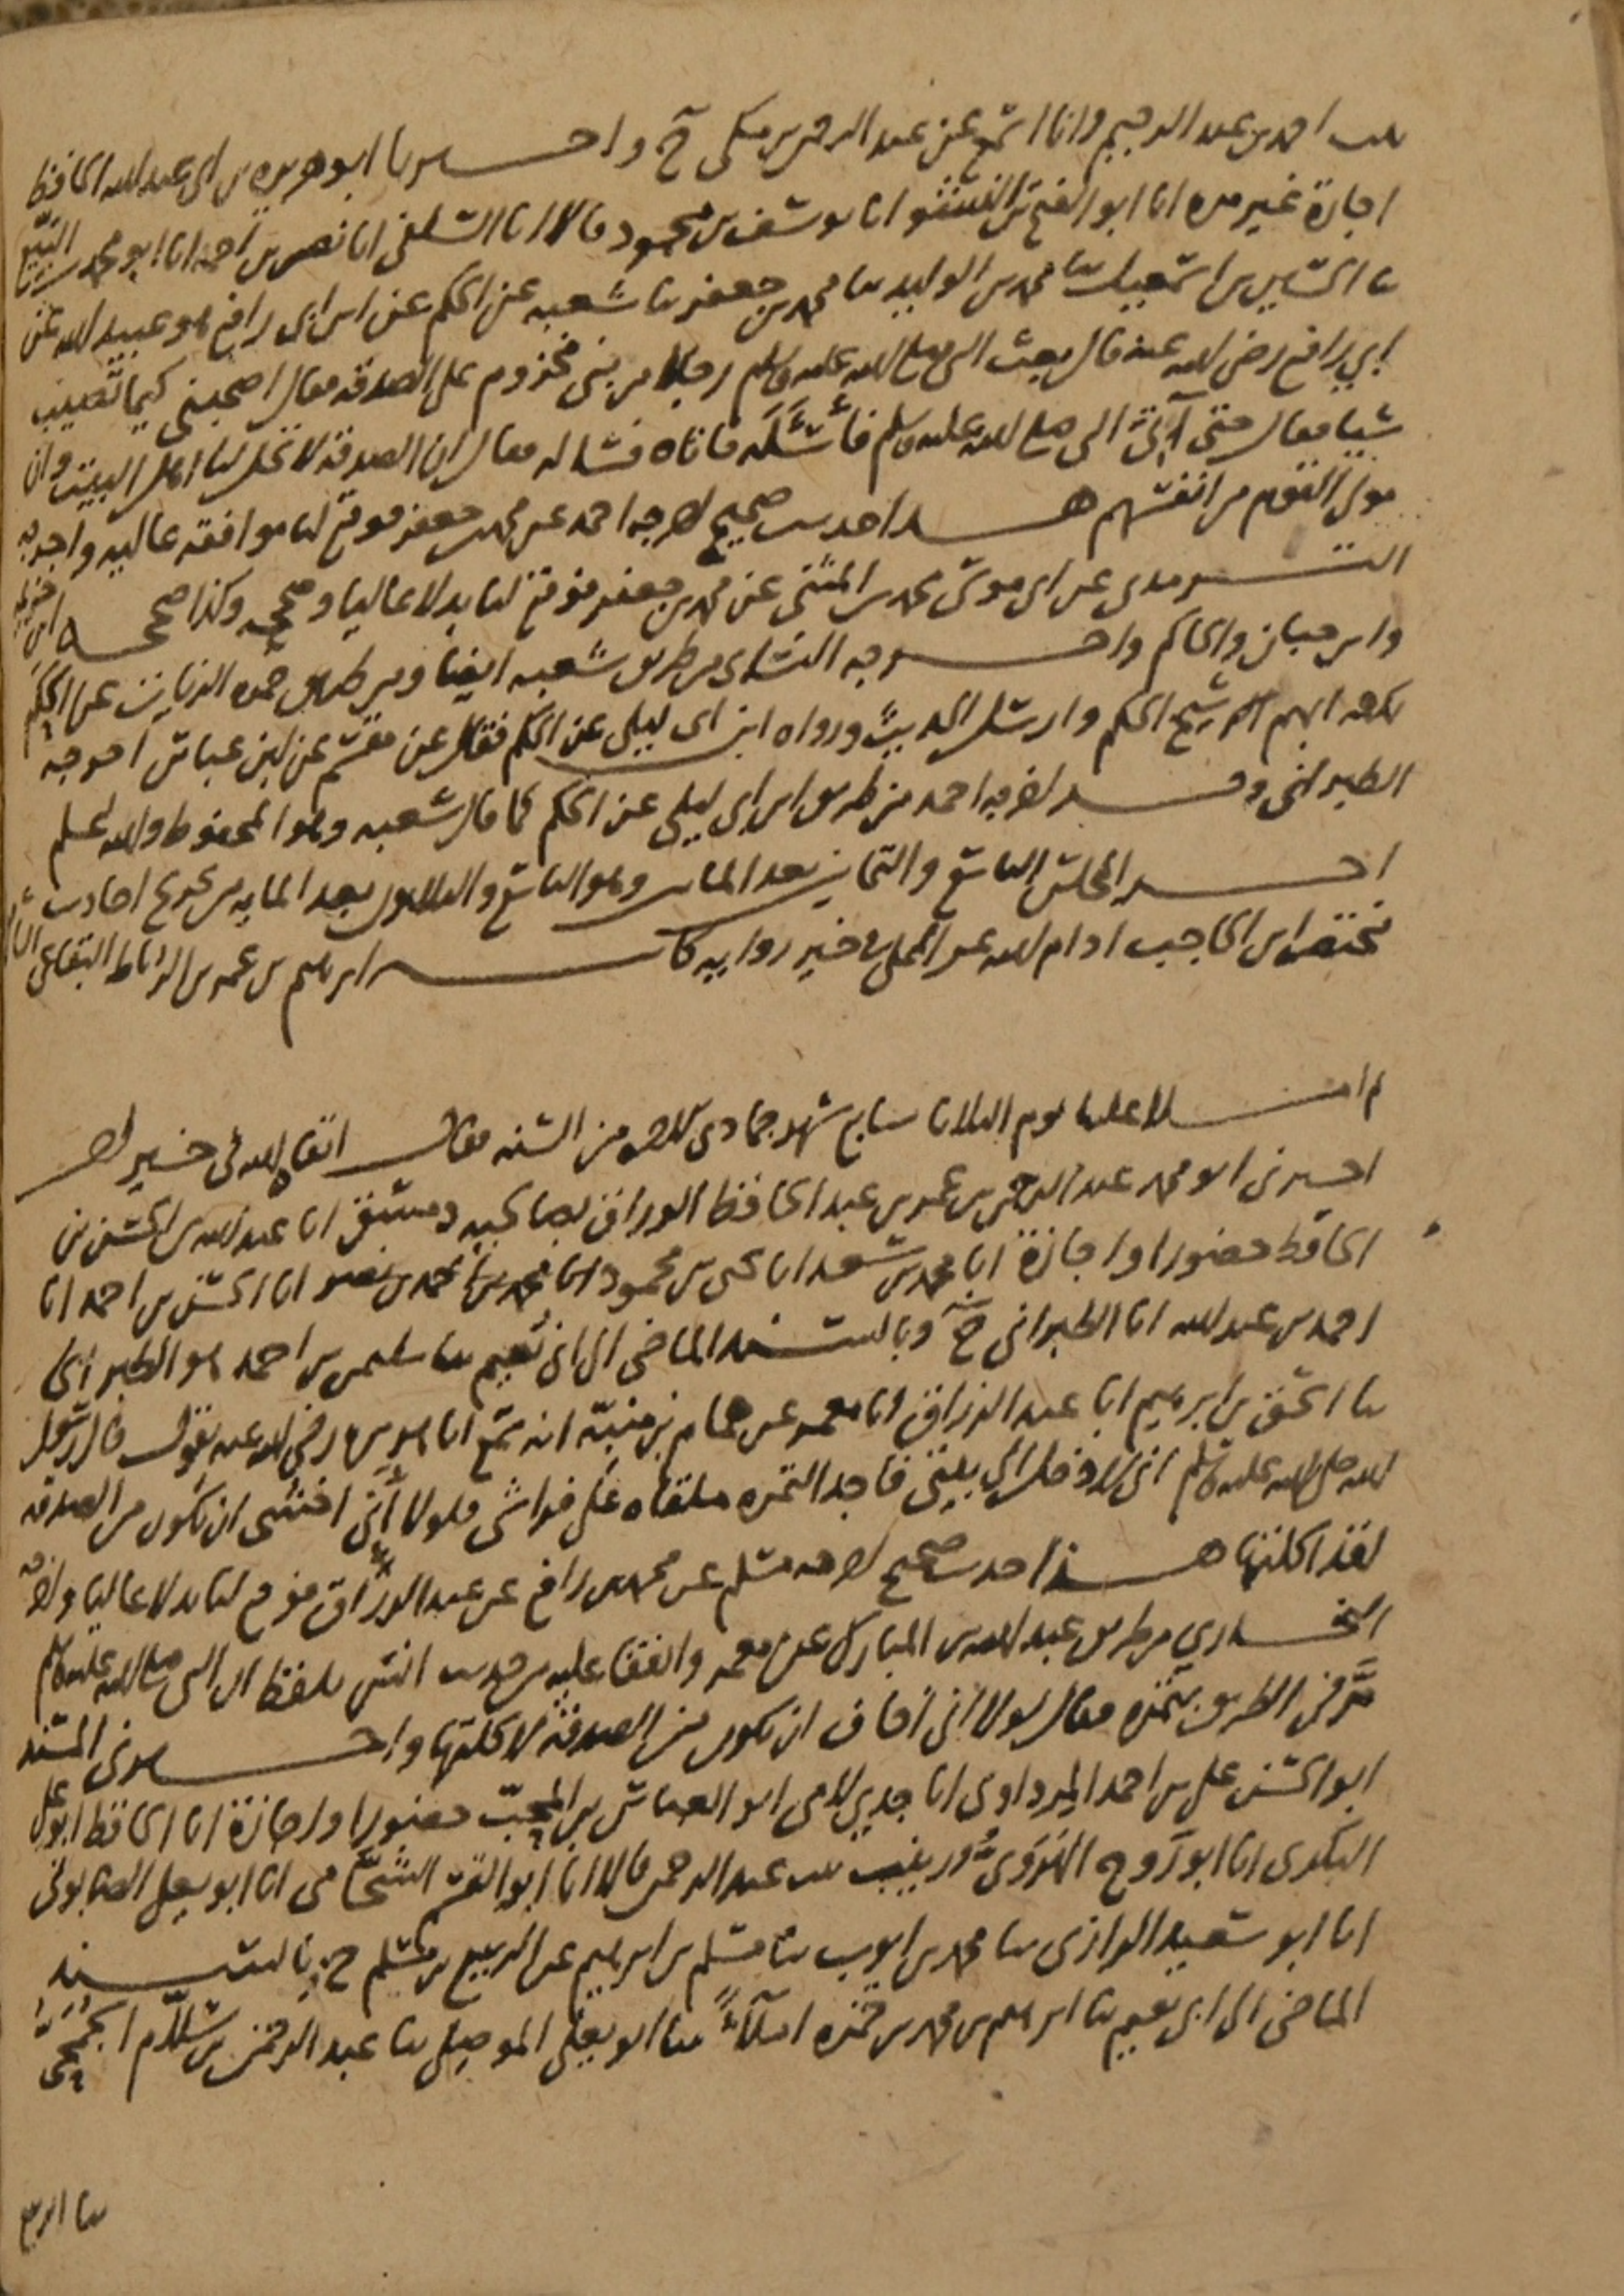 بنت احمد بن عبد الرحيم وانا اسمع عن عبد الرحمن بن مكي ح واخبرنا ابو هريرة بن ابي عبد الله الحافظ
اجازة غير مره انا ابو الفتح بن النشو انا يوسف بن محمود قالا انا السلفي انا نصر بن احمد انا ابو محمد بن البيع
نا الحسين بن اسمعيل نا محمد بن الوليد نا محمد بن جعفر نا شعبه عن الحكم عن ابن ابي رافع هو عبيد الله عن
ابي رافع رضي الله عنه قال بعث النبي صلى الله عليه وسلم رجلا من بني مخزوم على الصدقه فقال اصحبني كيما تصيب
شيا فقال حتى آتي النبي صلى الله عليه وسلم فأسئله فاتاه فساله فقال ان الصدقة لا تحل لنا اهل البيت وان
مولى القوم من انفسهم هذا حديث صحيح اخرجه احمد عن محمد بن جعفر فوقع لنا موافقه عاليه واخرجه
الترمذي عن ابي موسى محمد بن المثنى عن محمد بن جعفر فوقع لنا بدلا عاليا وصححه وكذا صححه ابن خزيمه
وابن حبان والحاكم واخرجه النسائي من طريق شعبه ايضا ومن طريق حمزه الزيات عن الحكم
لكنه ابهم شيخ الحكم وارسل الحديث ورواه ابن ابي ليلى عن الحكم فقال عن مقسم عن ابن عباس اخرجه
الطبراني وقد اخرجه احمد من طريق ابن ابي ليلى عن الحكم كما قال شعبه وهو المحفوظ والله اعلم
اخر المجلس التاسع والثمانين بعد الماتين وهو التاسع والثلاثون بعد المايه من تخريج احاديث
مختصر ابن الحاجب ادام الله عمر المملي في خير روايه كاتبه ابرهيم بن عمر بن الرباط البقاعي
ثم املا علينا يوم الثلاثا سابع شهر جمادى الاخره من السنه فقال ابقاه الله في خير
اخبرني ابو محمد عبد الرحمن بن عمر بن عبد الحافظ الوراق بصالحية دمشق انا عبد الله بن الحسن بن
الحافظ حضورا واجازة انا محمد بن سعد انا يحيى بن محمود انا محمد بن احمد بن نصر انا الحسن بن احمد انا
احمد بن عبد الله انا الطبراني ح وبالسند الماضي الى ابي نعيم نا سليمن بن احمد هو الطبراني
نا اسحق بن ابرهيم انا عبد الرزاق انا معمر عن همام بن منبه انه سمع ابا هريره رضي الله عنه يقول قال رسول
الله صلى الله عليه وسلم اني لادخل الى بيتي فاجد التمره ملقاه على فراشي فلولا أني اخشى ان تكون من الصدقه
لقد اكلتها هذا حديث صحيح اخرجه مسلم عن محمد بن رافع عن عبد الرزاق فوقع لنا بدلا عاليا واخرجه
البخاري من طريق عبد الله بن المبارك عن معمر واتفقا عليه من حديث انس بلفظ ان النبي صلى الله عليه وسلم
مر في الطريق بتمره فقال لولا أني أخاف ان تكون من الصدقة لاكلتها واخبرني المسند
ابو الحسن علي بن احمد المرداوي انا جدي لامي ابو العباس بن المحب حضورا واجازة انا الحافظ ابو علي
البكري انا ابو روح الهروي وزينب بنت عبد الرحمن قالا انا ابو القسم الشحامي انا ابو يعلى الصابوني
انا ابو سعيد الرازي نا محمد بن ايوب نا مسلم بن ابرهيم عن الربيع بن مسلم ح وبالسند
الماضي الى ابي نعيم نا ابرهيم بن محمد بن حمزه املاءً نا ابو يعلى الموصلي نا عبد الرحمن بن سلّام الجمحي
نا الربيع